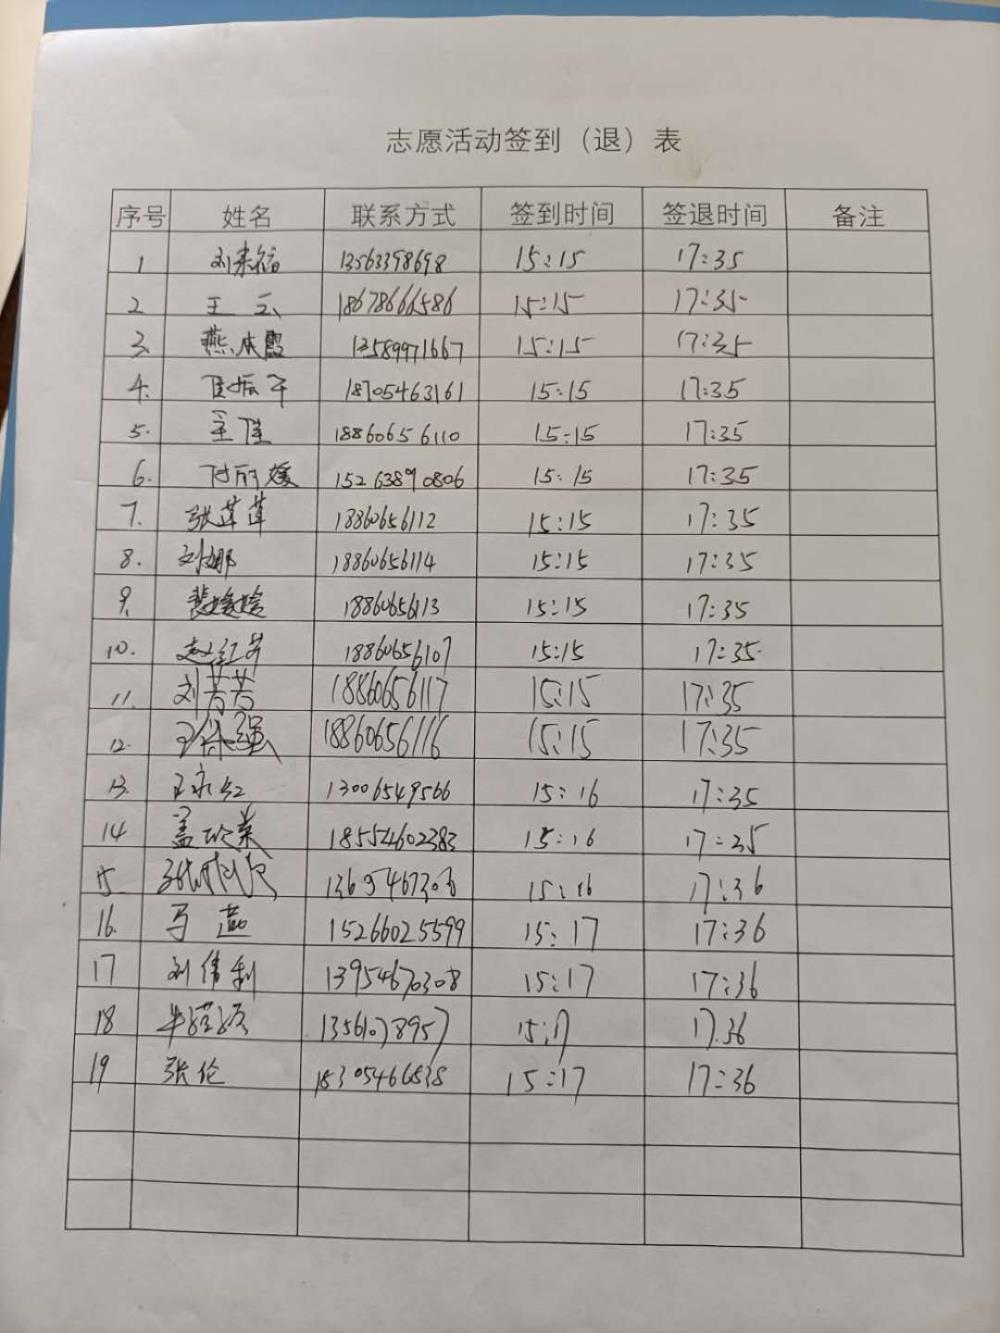 志愿活动签到（退）表
序号 姓名 联系方式 签到时间 签退时间 备注
1 刘来福 13563398698 15:15 17:35
2 王云 18678666586 15:15 17:35
3. 燕 霞 13589971667 15:15 17:35
4. 振 18705463161 15:15 17:35
5. 15:15 17:35 18860656110
6. 付丽媛 15263890806 15:15 17:35
7. 张莲莲 18860656112 15:15 17:35
8. 刘娜 18860656114 15:15 17:35
9. 裴 18860656113 15:15 17:35
10. 赵红芹 18860656107 15:15 17:35
11. 刘芳芳 18860656117 15:15 17:35
12. 王 强 18860656116 15:15 17:35
13. 王永红 13006549566 15:16 17:35
14 盖 英 18554602383 15:16 17:35
15 15:16 17:36
16. 马燕 15266025599 15:17 17:36
17 刘伟利 13954670308 15:17 17:36
18 15:17 17.36
19 张伦 18305466838 15:17 17:36